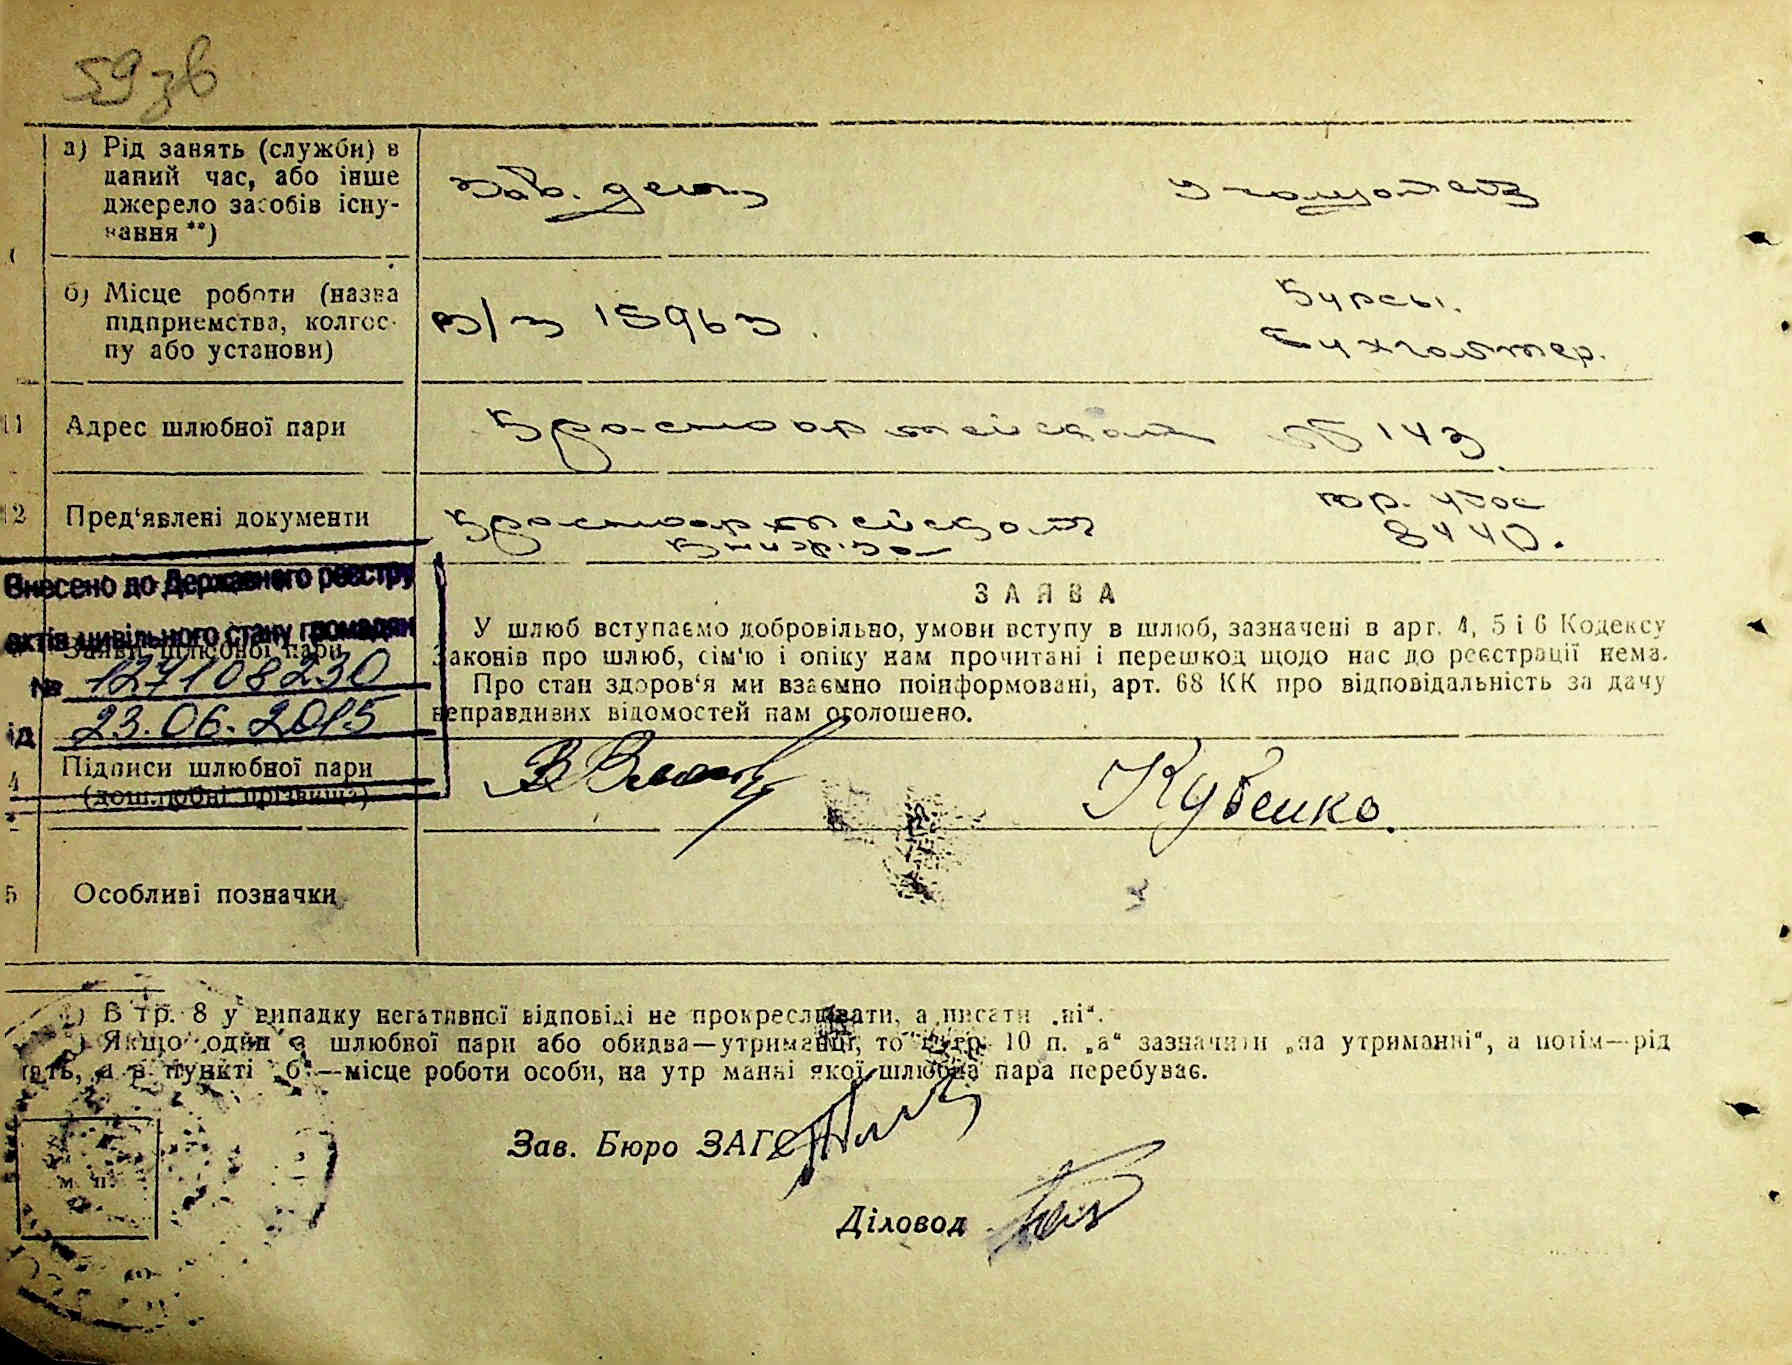 59зв
а) Рід занять (служби) в
даний час, або інше
джерело засобів існу-
вання **)
Зав. делоп
Учащаяся
б) Місце роботи (назва
підприємства, колгос-
пу або установи)
в/ч 15963
Курсы.
Бухгалтер.
11 Адрес шлюбної пари
Красноармейская 143
12 Пред'явлені документи
Красноармейская
книжка
8440.
Внесено до Державного реєстру
актів цивільного стану громадян
Заяви шлюбної пари
№ 127108230
ід 23.06.2015
ЗАЯВА
У шлюб вступаємо добровільно, умови вступу в шлюб, зазначені в арт. 4, 5 і 6 Кодексу
Законів про шлюб, сім'ю і опіку нам прочитані і перешкод щодо нас до реєстрації нема.
Про стан здоров'я ми взаємно поінформовані, арт. 68 КК про відповідальність за дачу
неправдивих відомостей нам оголошено.
4 Підписи шлюбної пари
(дошлюбні прізвища)
Кубенко.
5 Особливі позначки
) В гр. 8 у випадку негативної відповіді не прокреслювати, а писати „ні“.
) Якщо один з шлюбної пари або обидва—утриманці, то в гр. 10 п. „а“ зазначити „на утриманні“, а потім—рід
занять, а в пункті „б“—місце роботи особи, на утриманні якої шлюбна пара перебуває.
м. п.
Зав. Бюро ЗАГС
Діловод